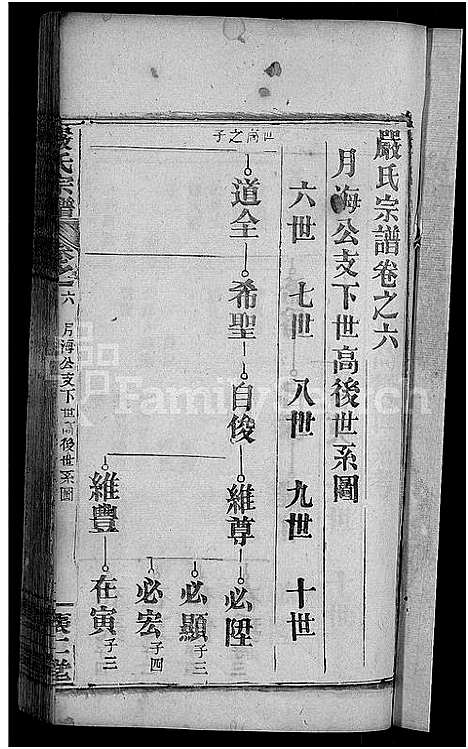 嚴氏宗譜卷之六
月海公支下世高後世系圖
六世 七世 八世 九世 十世
世高之子
道全 希聖 自俊 維尊 必陞
必顯 子三
必宏 子四
維豐 在寅 子三
嚴氏宗譜 卷之六 月海公支下世高後世系圖
FamilySearch